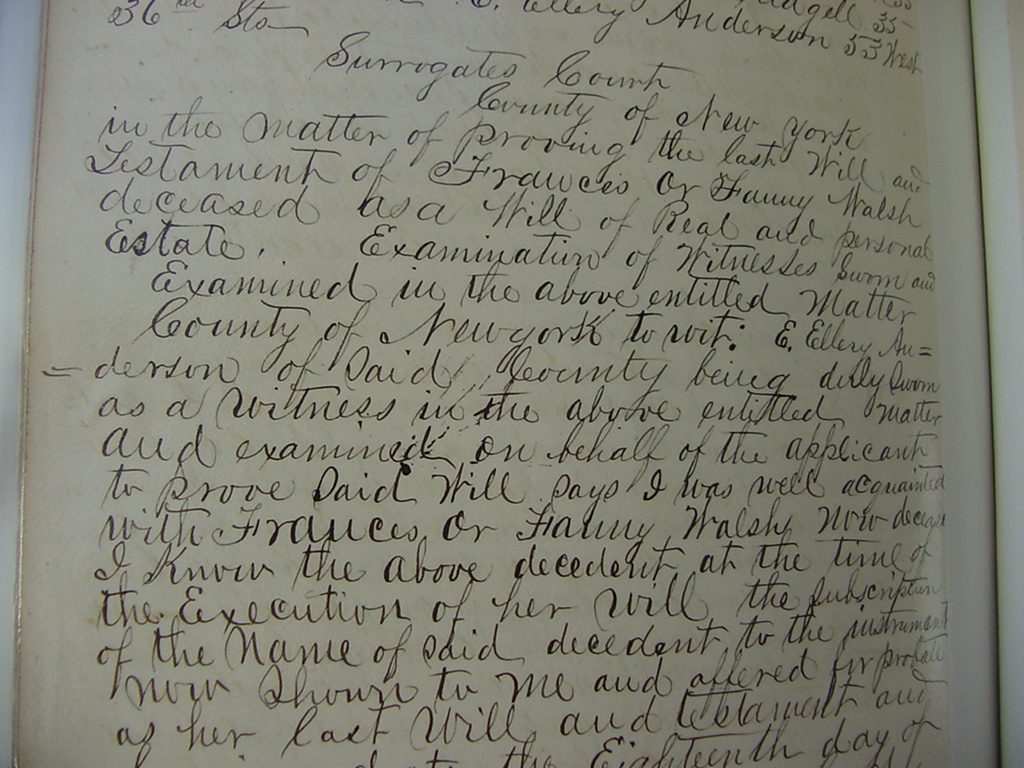 E. Ellery Anderson 55 West
36th Sta
Surrogates Court
County of New York
in the matter of Proving the last Will and
Testament of Frances or Fanny Walsh
deceased as a Will of Real and personal
Estate. Examination of Witnesses sworn and
Examined in the above entitled Matter
County of New York to wit: E. Ellery An=
=derson of Said County being duly sworn
as a Witness in the above entitled matter
and examined on behalf of the applicant
to prove said Will says I was well acquainted
with Frances or Fanny Walsh now deceased
I Knew the above decedent at the time of
the Execution of her Will the subscription
of the Name of said decedent to the instrument
now Shown to me and offered for probate
as her last Will and Testament and
the Eighteenth day of